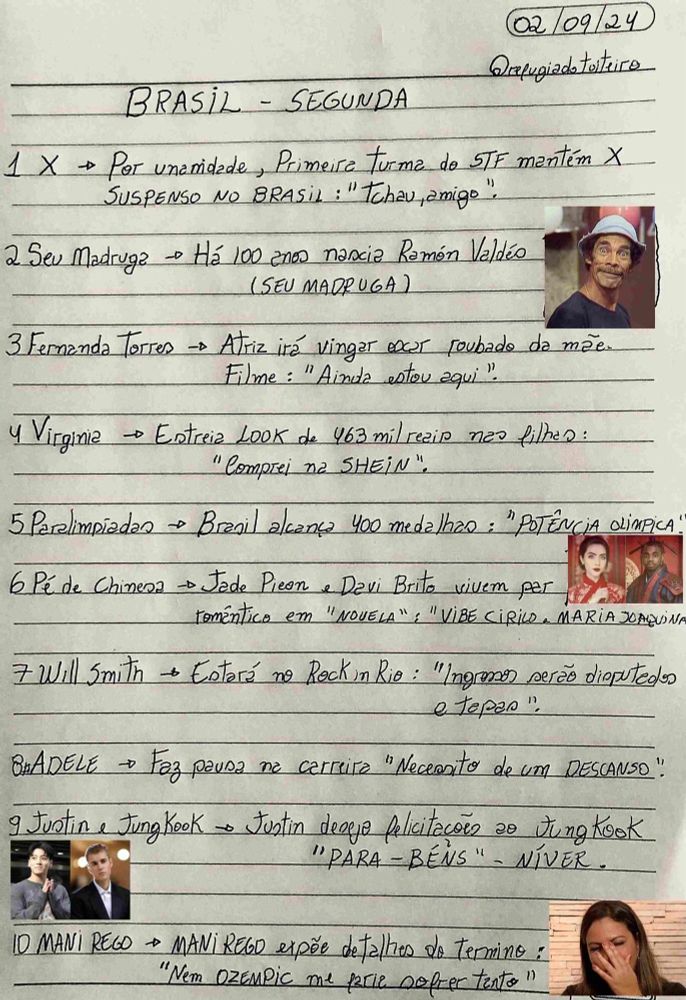 02/09/24
@refugiadotoiteiro
BRASIL - SEGUNDA
1 X → Por unanidade, Primeira turma do STF mantém X
SUSPENSO NO BRASIL : "Tchau, amigo".
2 Seu Madruga → Há 100 anos nascia Ramón Valdés
(SEU MADRUGA)
3 Fernanda Torres → Atriz irá vingar oscar roubado da mãe.
Filme : "Ainda estou aqui".
4 Virginia → Estreia LOOK de 463 mil reais nas filhas :
"Comprei na SHEIN".
5 Paralimpíadas → Brasil alcança 400 medalhas : "POTÊNCIA OLIMPICA".
6 Pé de Chinesa → Jade Picon e Davi Brito vivem par
romântico em "NOVELA" : "VIBE CIRILO e MARIA JOAQUINA
7 Will Smith → Estará no Rock in Rio : "Ingressos serão disputados
a tapas".
8 ADELE → Faz pausa na carreira "Necessito de um DESCANSO".
9 Justin e JungKook → Justin deseja felicitações ao JungKook
"PARA-BÉNS" - NÍVER.
10 MANI REGO → MANI REGO expõe detalhes do termino :
"Nem OZEMPIC me faria sofrer tanto"